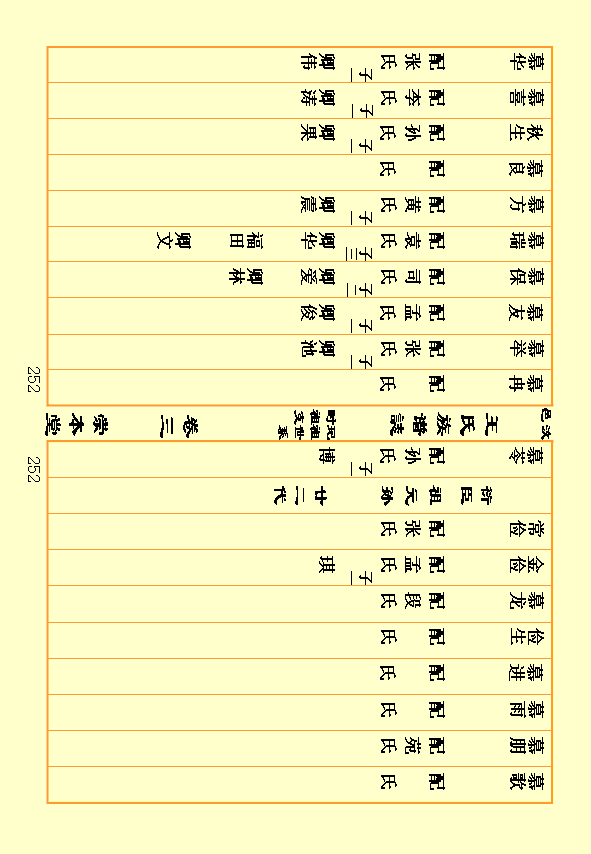 慕歌 配 氏
慕朋 配苑氏
慕雨 配 氏
慕进 配 氏
俭生 配 氏
慕龙 配段氏
金俭 配孟氏 子一 琪
常俭 配张氏
哲臣祖元孙 廿二代
慕苓 配孙氏 子一 博
252
汶邑 王氏族谱誌 宛祖世系 时祖支 卷三 崇本堂
慕冉 配 氏
慕举 配张氏 子一 卿池
慕友 配孟氏 子一 卿俊
慕保 配司氏 子二 卿爱 卿林
慕瑞 配袁氏 子三 卿华 福田 卿文
慕方 配黄氏 子一 卿震
慕良 配 氏
秋生 配孙氏 子一 卿果
慕喜 配李氏 子一 卿涛
慕华 配张氏 子一 卿伟
252